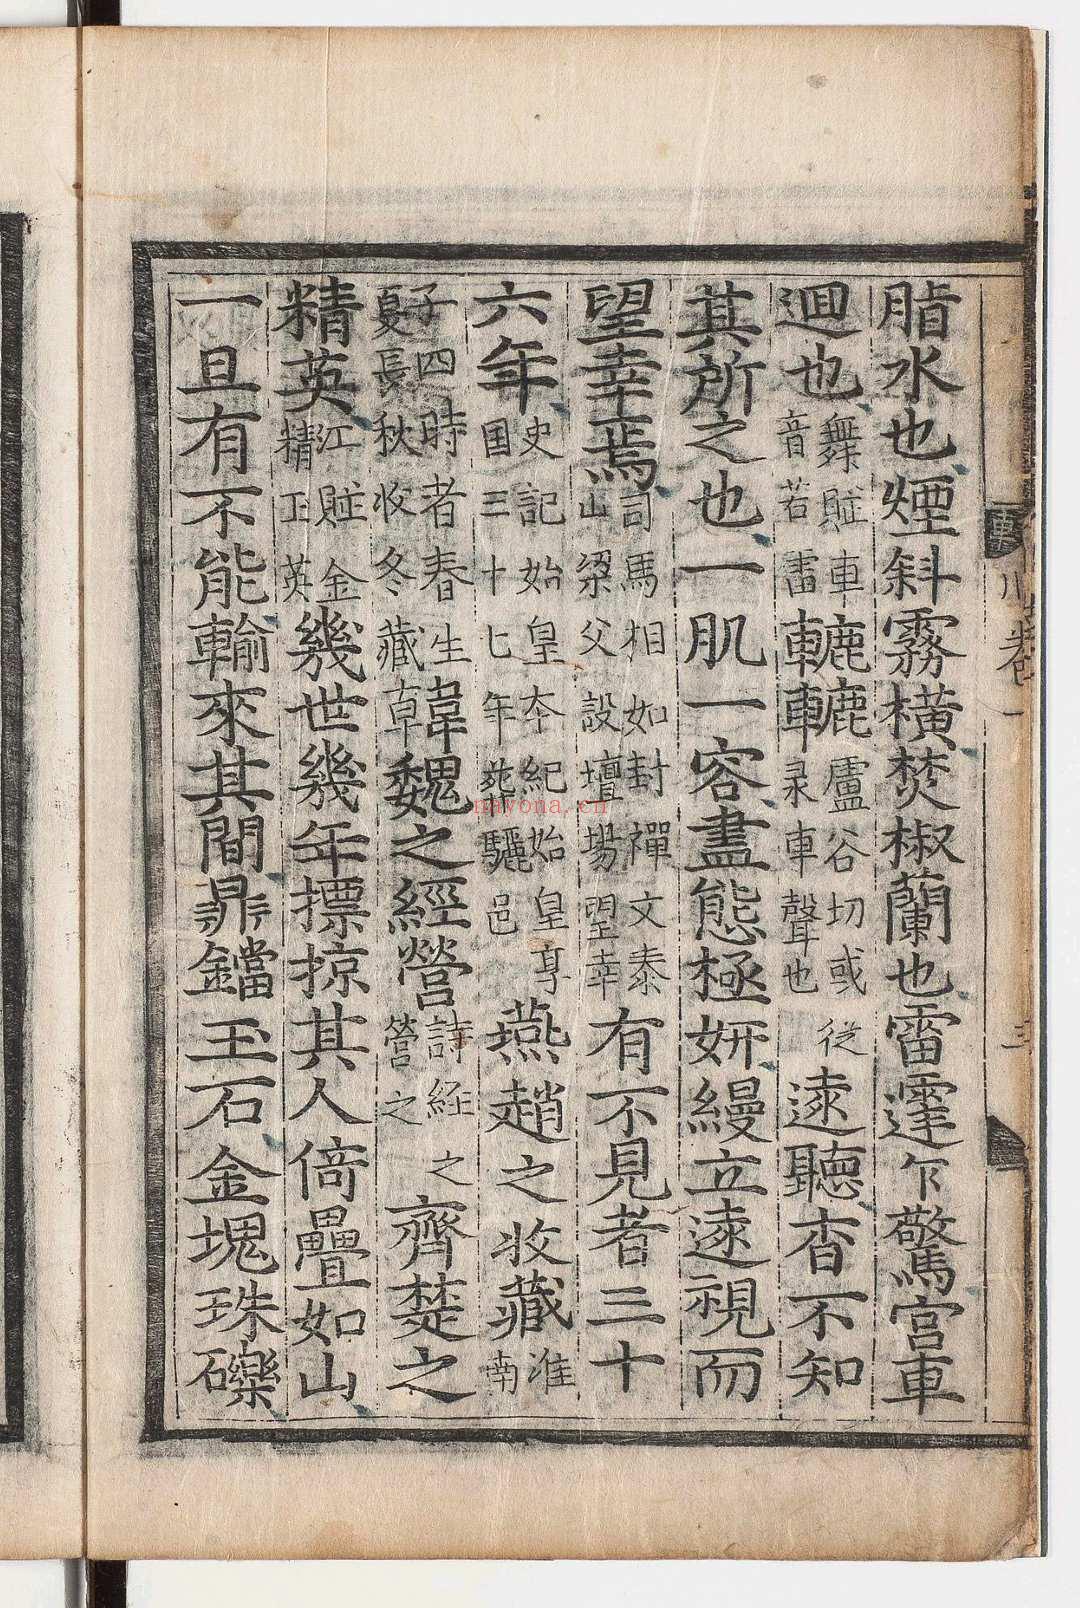 脂水也煙斜霧橫焚椒蘭也雷霆乍驚宮車
過也舞賦車音若雷轆轆轤谷切或從录車聲也遠聽杳不知
其所之也一肌一容盡態極姸縵立遠視而
望幸焉司馬相如封禪文泰山梁父設壇場望幸有不見者三十
六年史記始皇本紀始皇享国三十七年葬驪邑燕趙之收藏淮南
子四時者春生夏長秋收冬藏韋魏之經營詩経之營之齊楚之
精英江賦金精玉英幾世幾年摽掠其人倚疊如山
一旦有不能輸來其間鼎鐺玉石金塊珠礫
卷一
三
nayona.cn